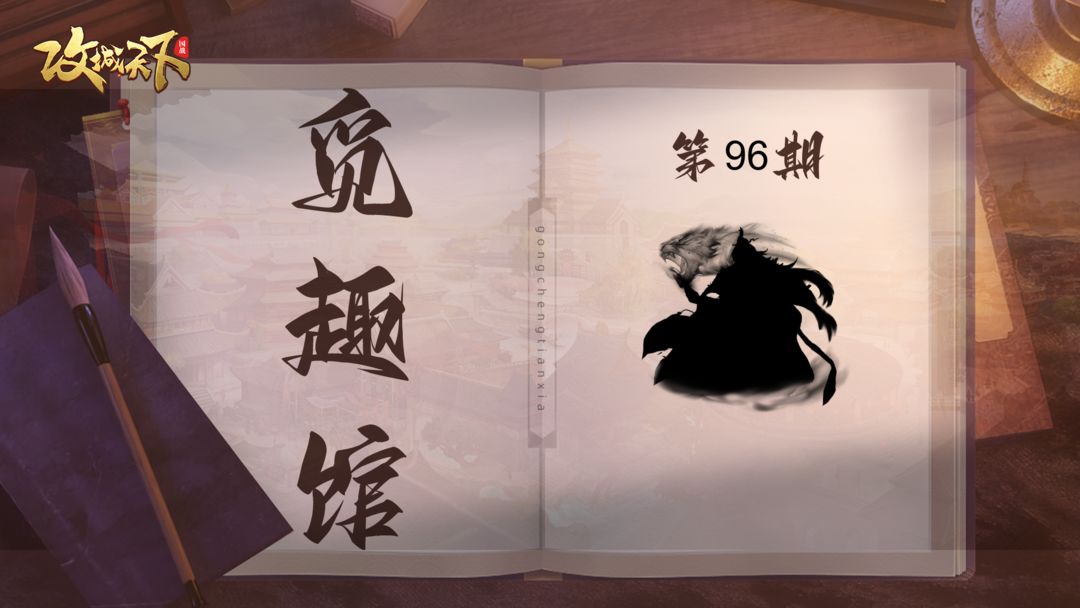 攻城天下
国战
觅趣馆
第96期
gongchengtianxia